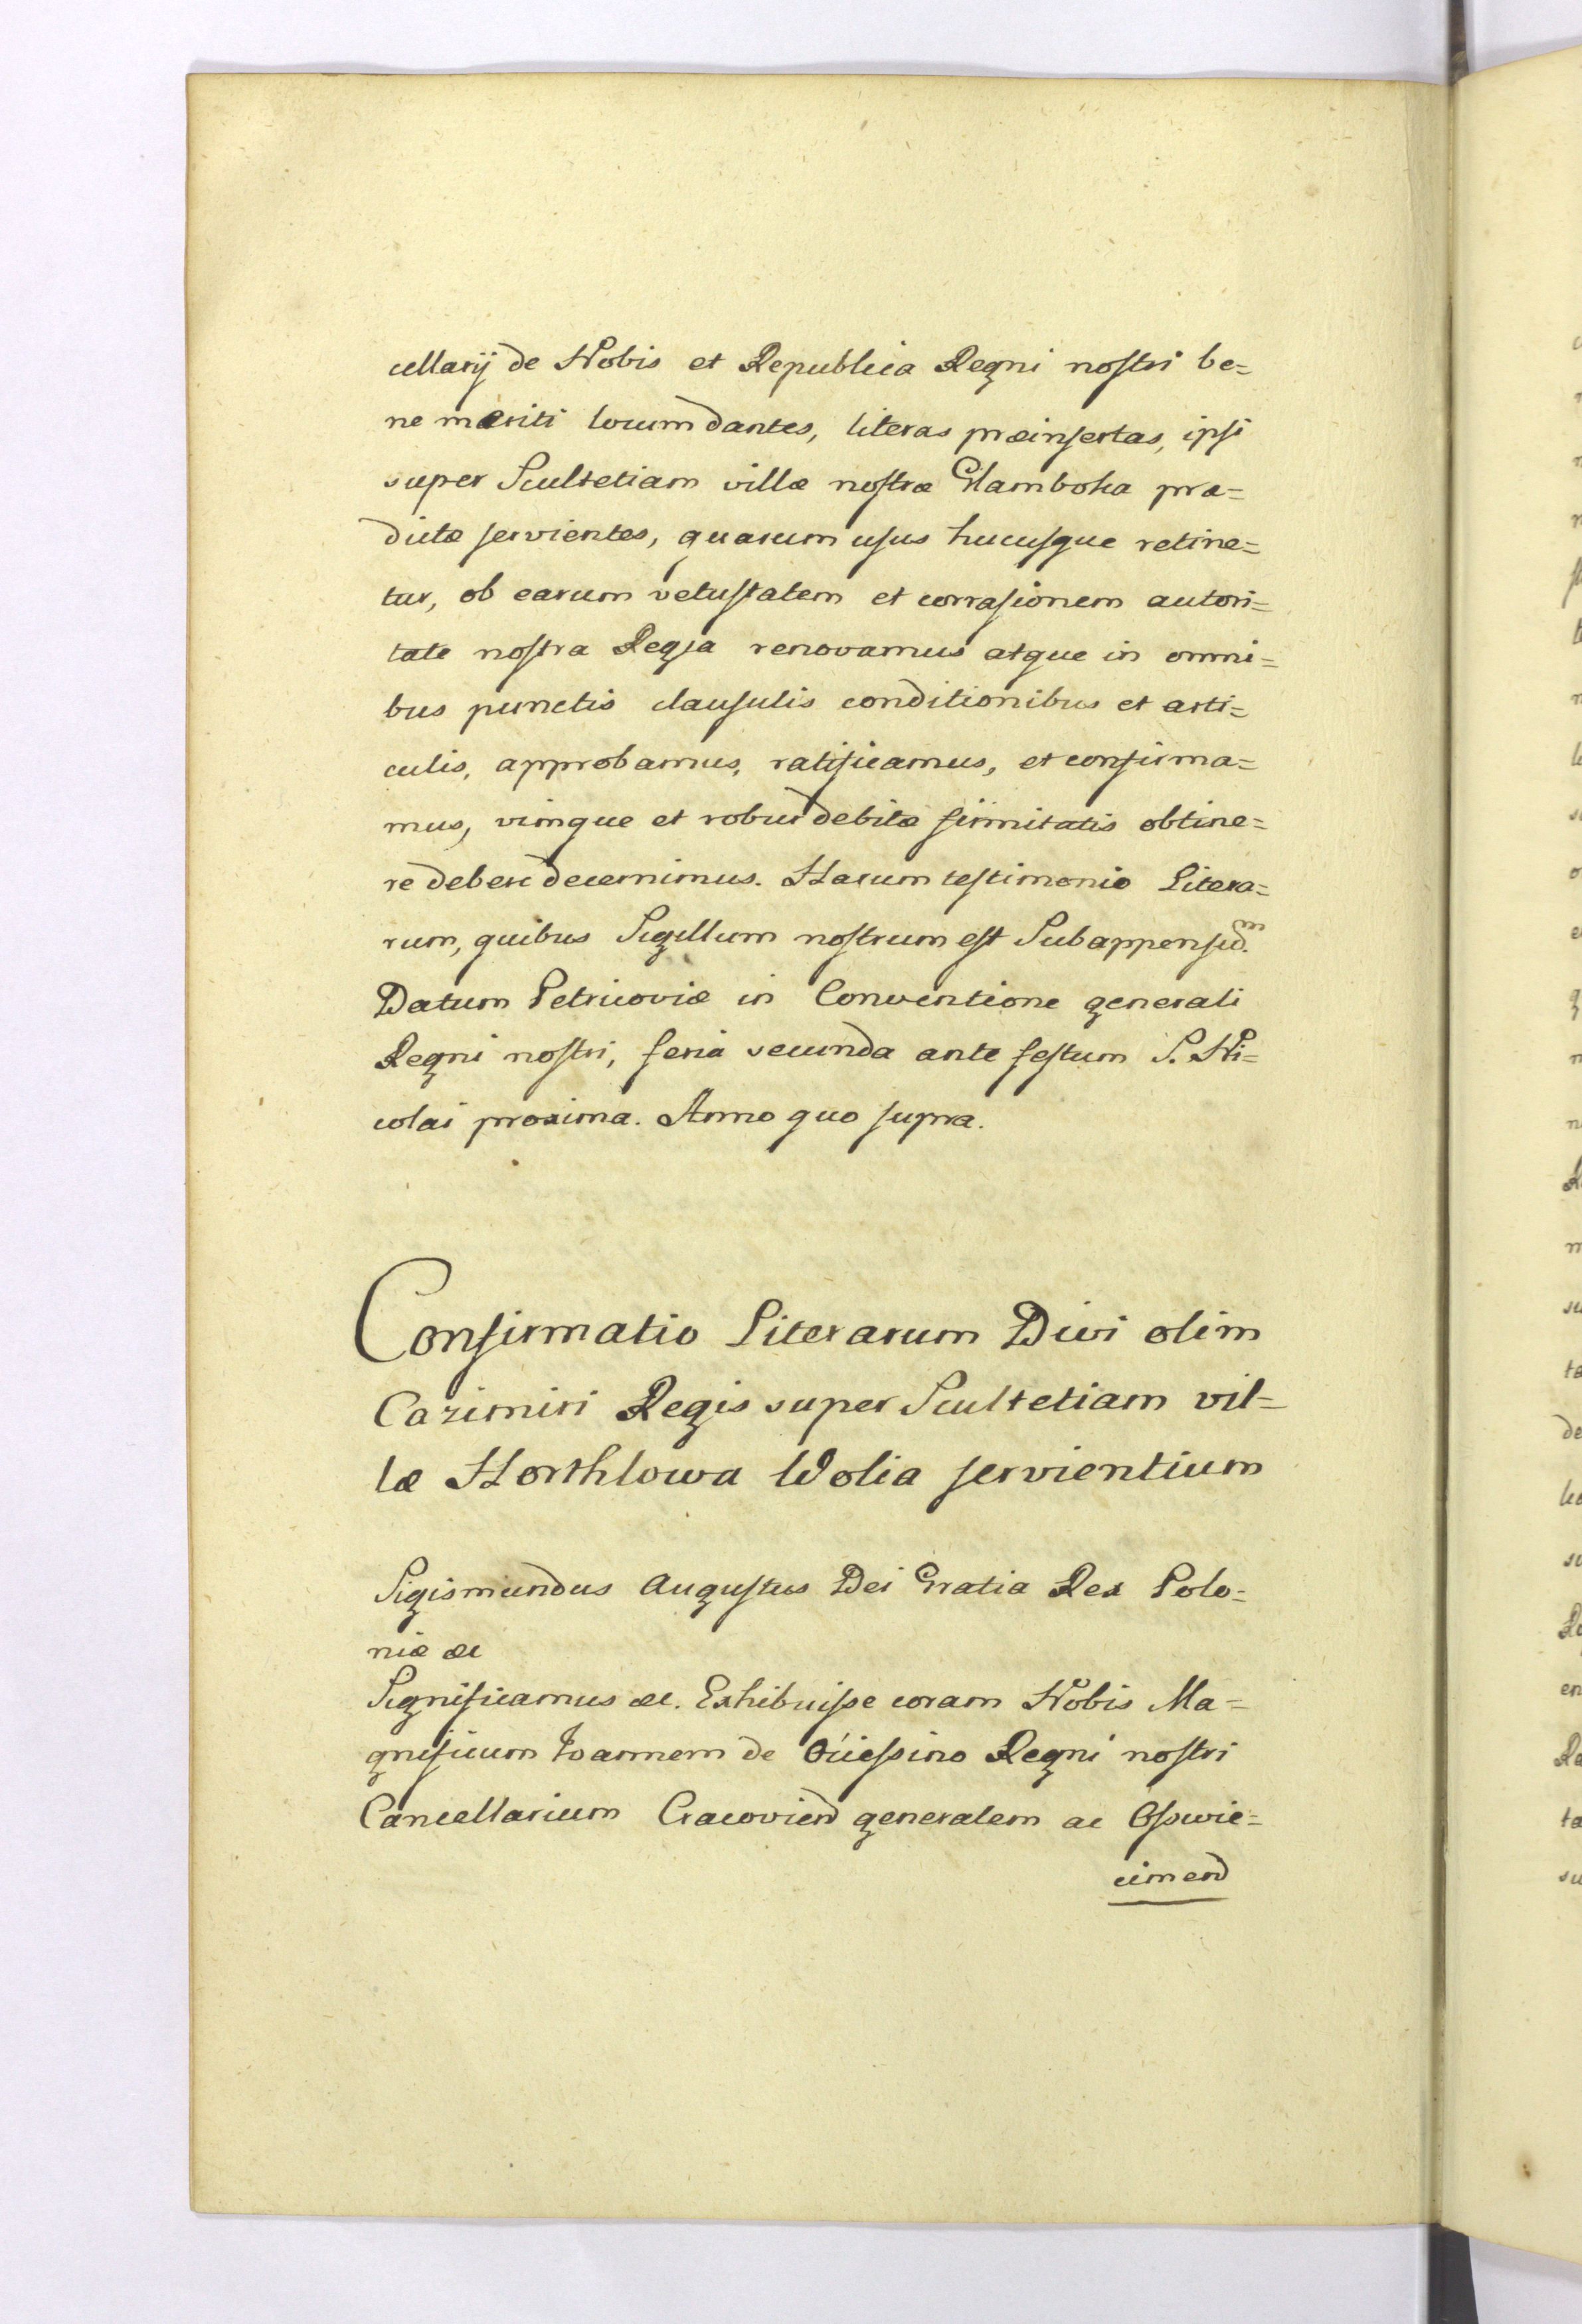 cellarij de Nobis et Republica Regni nostri be=
ne meriti locum dantes, literas præinsertas, ipsi
super Scultetiam villæ nostræ Glamboka præ=
dictæ servientes, quarum usus hucusque retine=
tur, ob earum vetustatem et corrasionem autori=
tate nostra Regia renovamus atque in omni=
bus punctis clausulis conditionibus et arti=
culis, approbamus, ratificamus, et confirma=
mus, vimque et robur debitæ firmitatis obtine=
re debere decernimus. Harum testimonio Litera=
rum, quibus Sigillum nostrum est Subappensum.
Datum Petricoviæ in Conventione generali
Regni nostri, feria secunda ante festum S. Ni=
colai proxima. Anno quo supra.
Confirmatio Literarum Divi olim
Cazimiri Regis super Scultetiam vil=
læ Horthlowa Wolia servientium
Sigismundus Augustus Dei Gratia Rex Polo=
niæ &c
Significamus &c. Exhibuisse coram Nobis Ma=
gnificum Joannem de Regni nostri
Cancellarium Cracovien generalem ac Oswie=
cimen